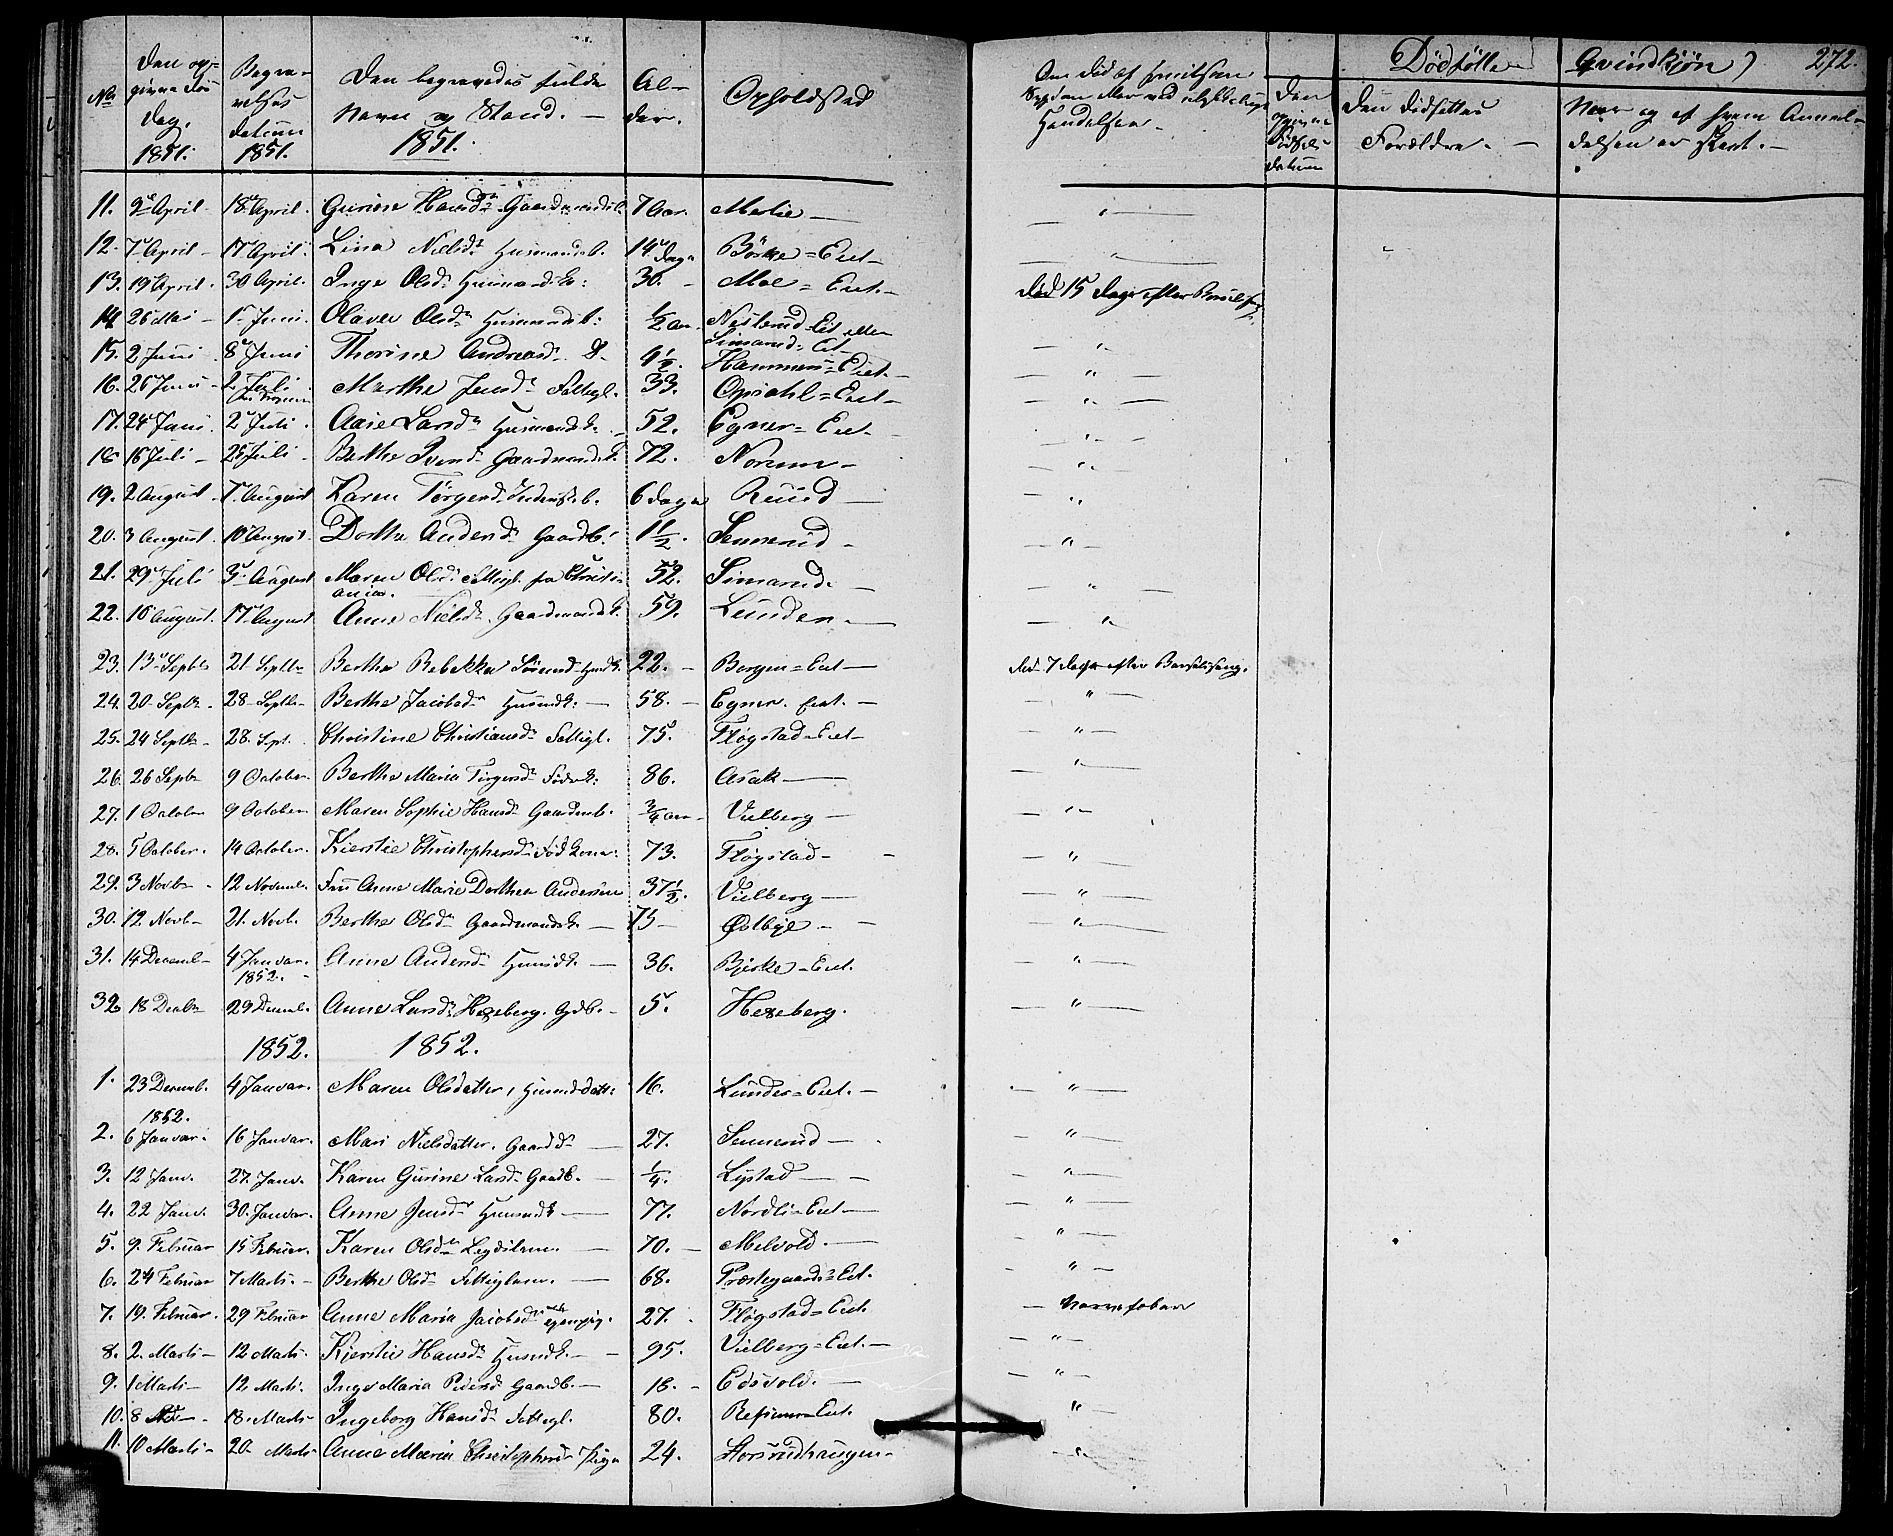 272.
No
Den opgivne Døds Dag. 1851.
Begravelses datum 1851.
Den begravedes fulde Navn og Stand. 1851.
Alder.
Opholdsted
Dødfødte Qvindkjøn)
Den opgivne Fødsels datum
Den dødfødtes Forældre.
Naar og af hvem Anmeldelsen er skeet.
11. 9 April 18 April. Gurine Hansd. Gaardmandsb. 7 Aar. Melie
12. 7 April 17 April Lina Nielsd. Husmandsb. 14 Dage Eiet
13. 19 April. 30 April. Inge Olsd. Husmandsk: 30. Moe = Eiet. død 15 Dage efter Barselseng
14. 26 Mai 1 Juni. Olava Olsd. Husmandsb: 1/2 Aar Eiet eller
Simarud = Eiet
15. 2 Juni 8 Juni Thorine Andreasd. 4 1/2. Hammer = Eiet.
16. 26 Juni 2 Juli Marthe Jensd. Fattigl. 33. Opsahl = Eiet
17. 24 Juni 2 Juli. Aase Larsd. Husmandsk. 52. Egner = Eiet
18 16 Juli 25 Juli Berthe Iversd. Gaardmandsk. 72. Norum
19. 2 August 7 August Karen Torgersd. b. 6 Dage Ruud
20. 3 August. 10 August. Dorthe Andersd. Gaardb. 1 1/2. Sennerud
21. 29 Juli 3 August Maren Olsd. Fattigl. fra Christiania. 52. Simarud.
22. 10 August. 17 August Anne Nielsd. Gaardmandsk. 59. Lunder
23. 13 Septb 21 Septb Berthe Rebekka Sørensd. Husmk. 22. Borgen = Eiet død 7 Dage efter Barselseng.
24. 20 Septb. 28 Septb Berthe Jacobsd. Husmk. 58. Egner. Eiet.
25. 24 Septb. 28. Sept. Christine Christiansd. Fattigl. 75. Fløgstad = Eiet
26. 26 Septb 9 October Berthe Maria Torgersd. Føderk: 86. Asak
27. 1 October 9 October Maren Sophie Hansd. Gaardmb. 3/4 Aar Vilberg
28. 5 October. 14 October. Kierstie Christophersd. Fødkone: 73. Fløgstad
29. 3 Novb 12 Novemb. Fru Anne Marie Dorthea Andersen 37 1/2. Vilberg
30. 12 Novb 21. Novb. Berthe Olsd. Gaardmandsk. 75 Østbye
31. 14 Decemb 4 Januar. 1852. Anne Andersd. Husmk. 36. Bjerke = Eiet.
32 18 Decb 29 Decemb. Anne Larsd. Hexeberg. Gdb. 5. Hexeberg.
1852. 1852.
1. 23 Decemb. 4 Januar. Maren Olsdatter, Husmdsdatt: 16. Lunder = Eiet.
1852.
2. 6 Januar. 16 Januar. Mari Nielsdatter. Gaardd. 27. Sennerud
3. 12 Janv. 27. Janv. Karen Gurine Larsd. Gaardb. 1/4. Lystad
4. 22 Janv. 30. Januar. Anne Jensd. Husmdk 77. Nordli = Eiet
5. 9. Februar 15 Februar. Karen Olsd. Legdslem. 70. Melvold.
6. 24 Februar 7 Marts. Berthe Olsd. Fattiglem. 68. Præstegaards = Eiet.
7. 19. Februar. 29 Februar Anne Maria Jacobsd. 27. Fløgstad = Eiet. Nervefeber
8. 2. Marts 12 Marts. Kjerstie Hansd. Husmdk. 95. Vilberg = Eiet.
9. 1 Marts 12 Marts. Inge Maria Pedersd. Gaardb. 18. Eidsvold.
10. 8 18. Marts Ingeborg Hansd. Fattigl. 80. Eiet.
11. 10 Marts 20 Marts Anne Maria Christophersd. Pige 24. Horsrudhaugen